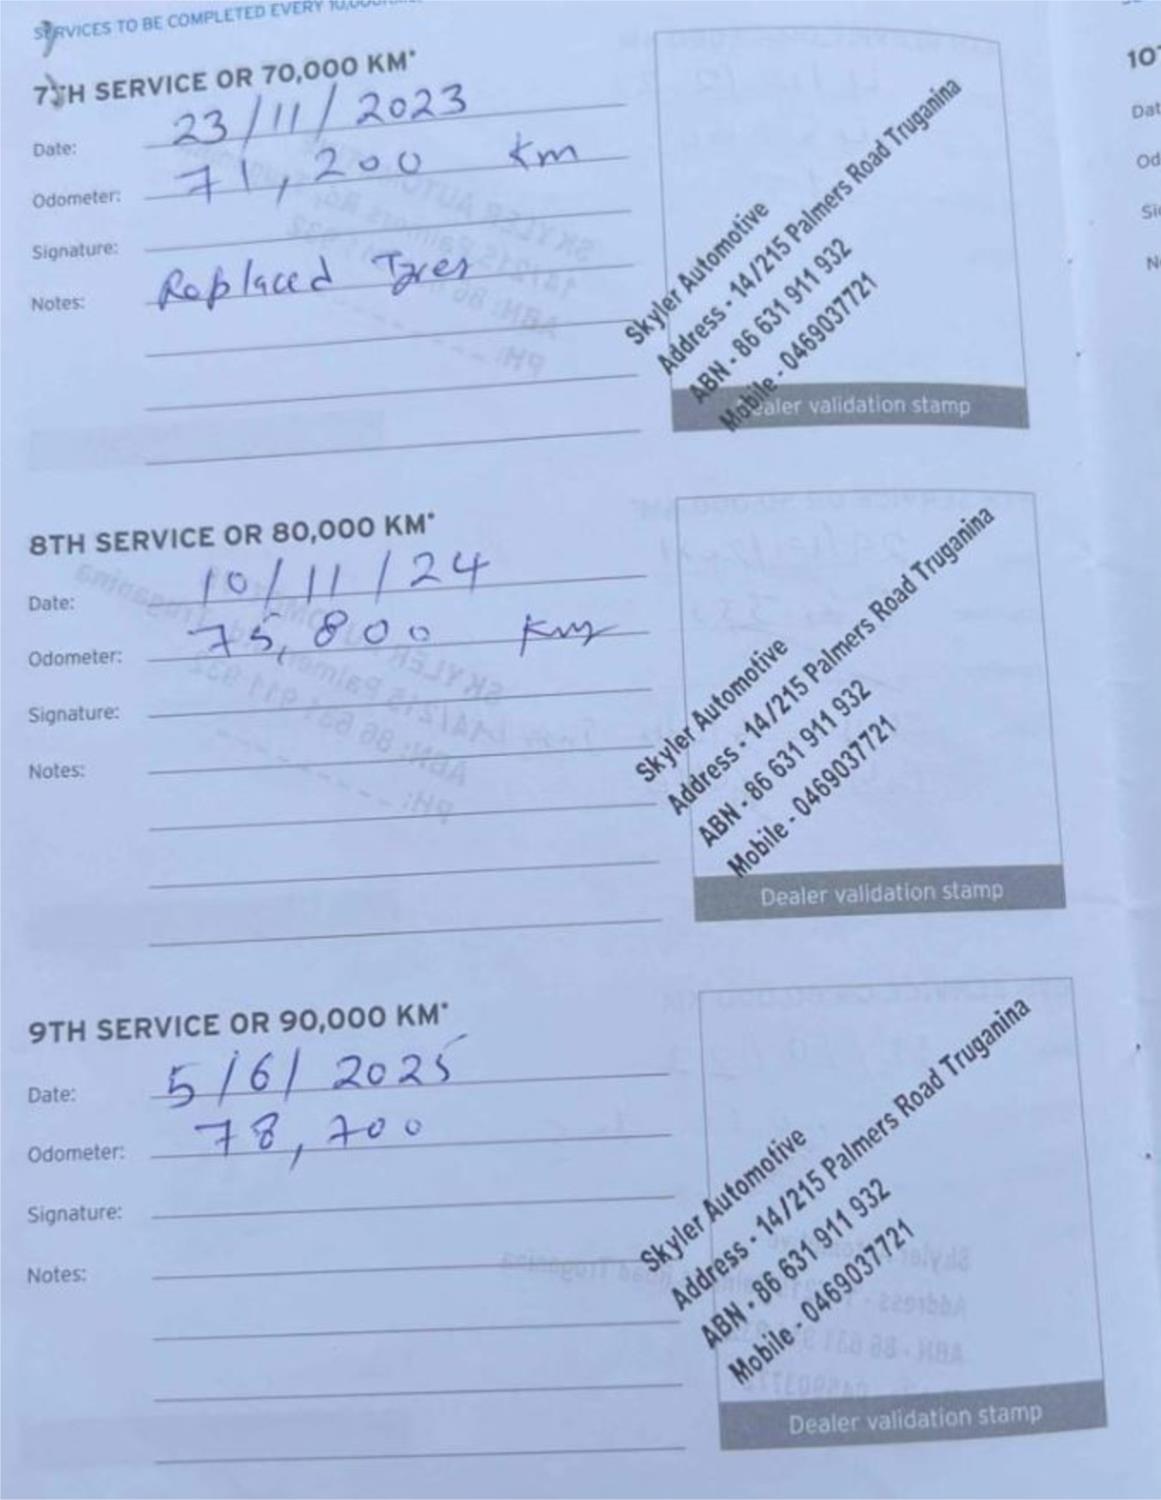 SERVICES TO BE COMPLETED EVERY 10,000
7TH SERVICE OR 70,000 KM*
Date: 23/11/2023
Odometer: 71,200 Km
Signature:
Notes: Replaced Tyres
Skyler Automotive
Address - 14/215 Palmers Road Truganina
ABN - 86 631 911 932
Mobile - 0469037721
Dealer validation stamp
8TH SERVICE OR 80,000 KM*
Date: 10/11/24
Odometer: 75,800 Km
Signature:
Notes:
Skyler Automotive
Address - 14/215 Palmers Road Truganina
ABN - 86 631 911 932
Mobile - 0469037721
Dealer validation stamp
9TH SERVICE OR 90,000 KM*
Date: 5/6/2025
Odometer: 78,700
Signature:
Notes:
Skyler Automotive
Address - 14/215 Palmers Road Truganina
ABN - 86 631 911 932
Mobile - 0469037721
Dealer validation stamp
10
Dat
Od
Si
N